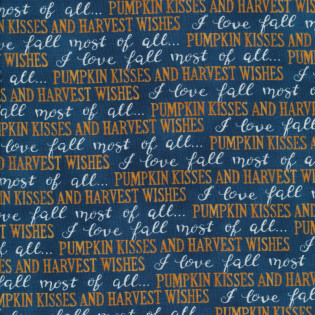 most of all... PUMPKIN KISSES AND HARVEST WISHES I love
KIN KISSES AND HARVEST WISHES I love fall most of all...
WISHES I love fall most of all... PUMPKIN KISSES AND HARVEST
all... PUMPKIN KISSES AND HARVEST WISHES I love fall
S AND HARVEST WISHES I love fall most of all...
fall most of all... PUMPKIN KISSES AND HARVEST WISHES
PUMPKIN KISSES AND HARVEST WISHES I love fall most
I love fall most of all... PUMPKIN KISSES AND
AND HARVEST WISHES I love fall most of all...
most of all... PUMPKIN KISSES AND HARVEST WISHES I
KIN KISSES AND HARVEST WISHES I love fall most of
love fall most of all... PUMPKIN KISSES AND HARVEST
ST WISHES I love fall most of all... PUMPKIN
of all... PUMPKIN KISSES AND HARVEST WISHES I
ES AND HARVEST WISHES I love fall most of all...
fall most of all... PUMPKIN KISSES AND HARVEST WISHES
MPKIN KISSES AND HARVEST WISHES I love fall most